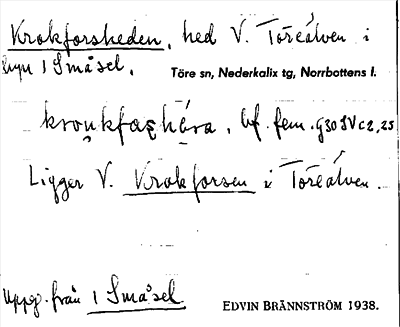 Krokforsheden, hed V. Töreälven i
byn 1 Småsel.
Töre sn, Nederkalix tg, Norrbottens l.
bf. fem. G30 SV c 2, 25
Ligger V. Krokforsen i Töreälven.
Uppg. från 1 Småsel
EDVIN BRÄNNSTRÖM 1938.